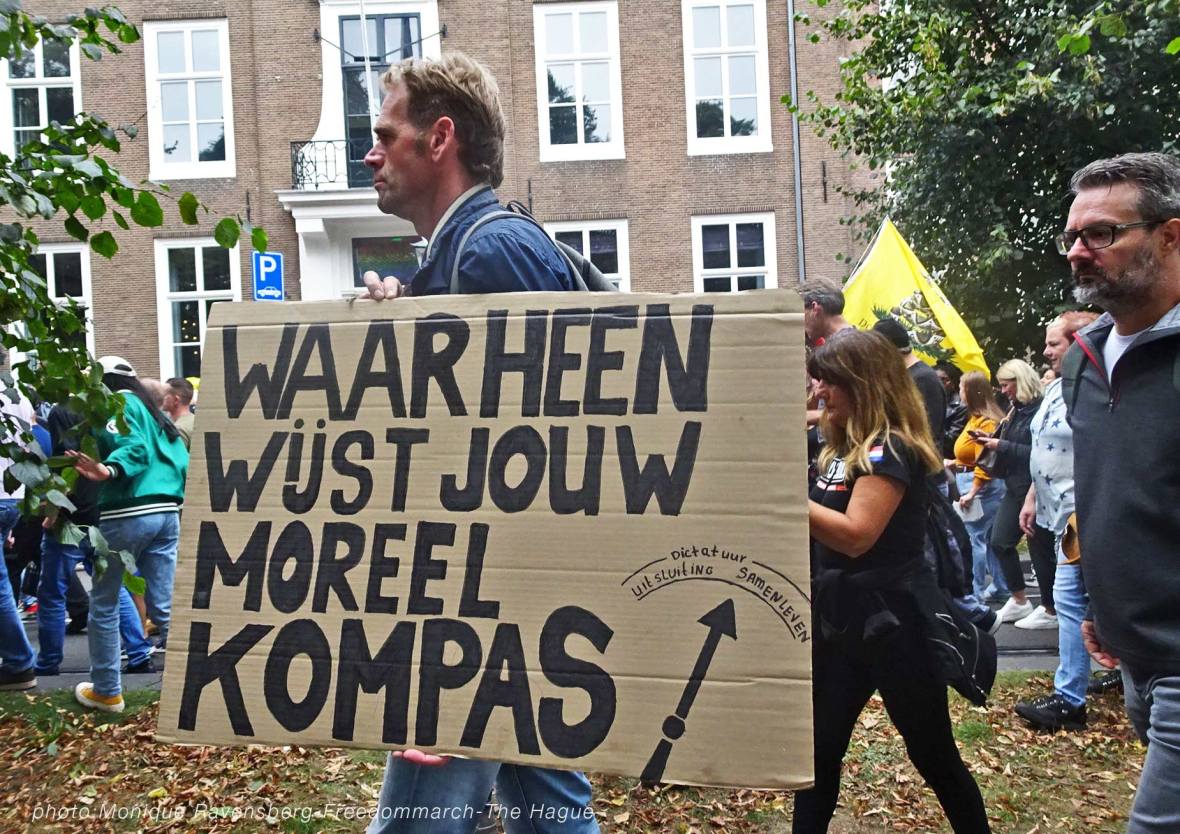 P
WAARHEEN
WIJST JOUW
MOREEL
KOMPAS
Dictatuur
UITSLUITING SAMENLEVEN
photo:Monique Ravensberg-Freedommarch-The Hague